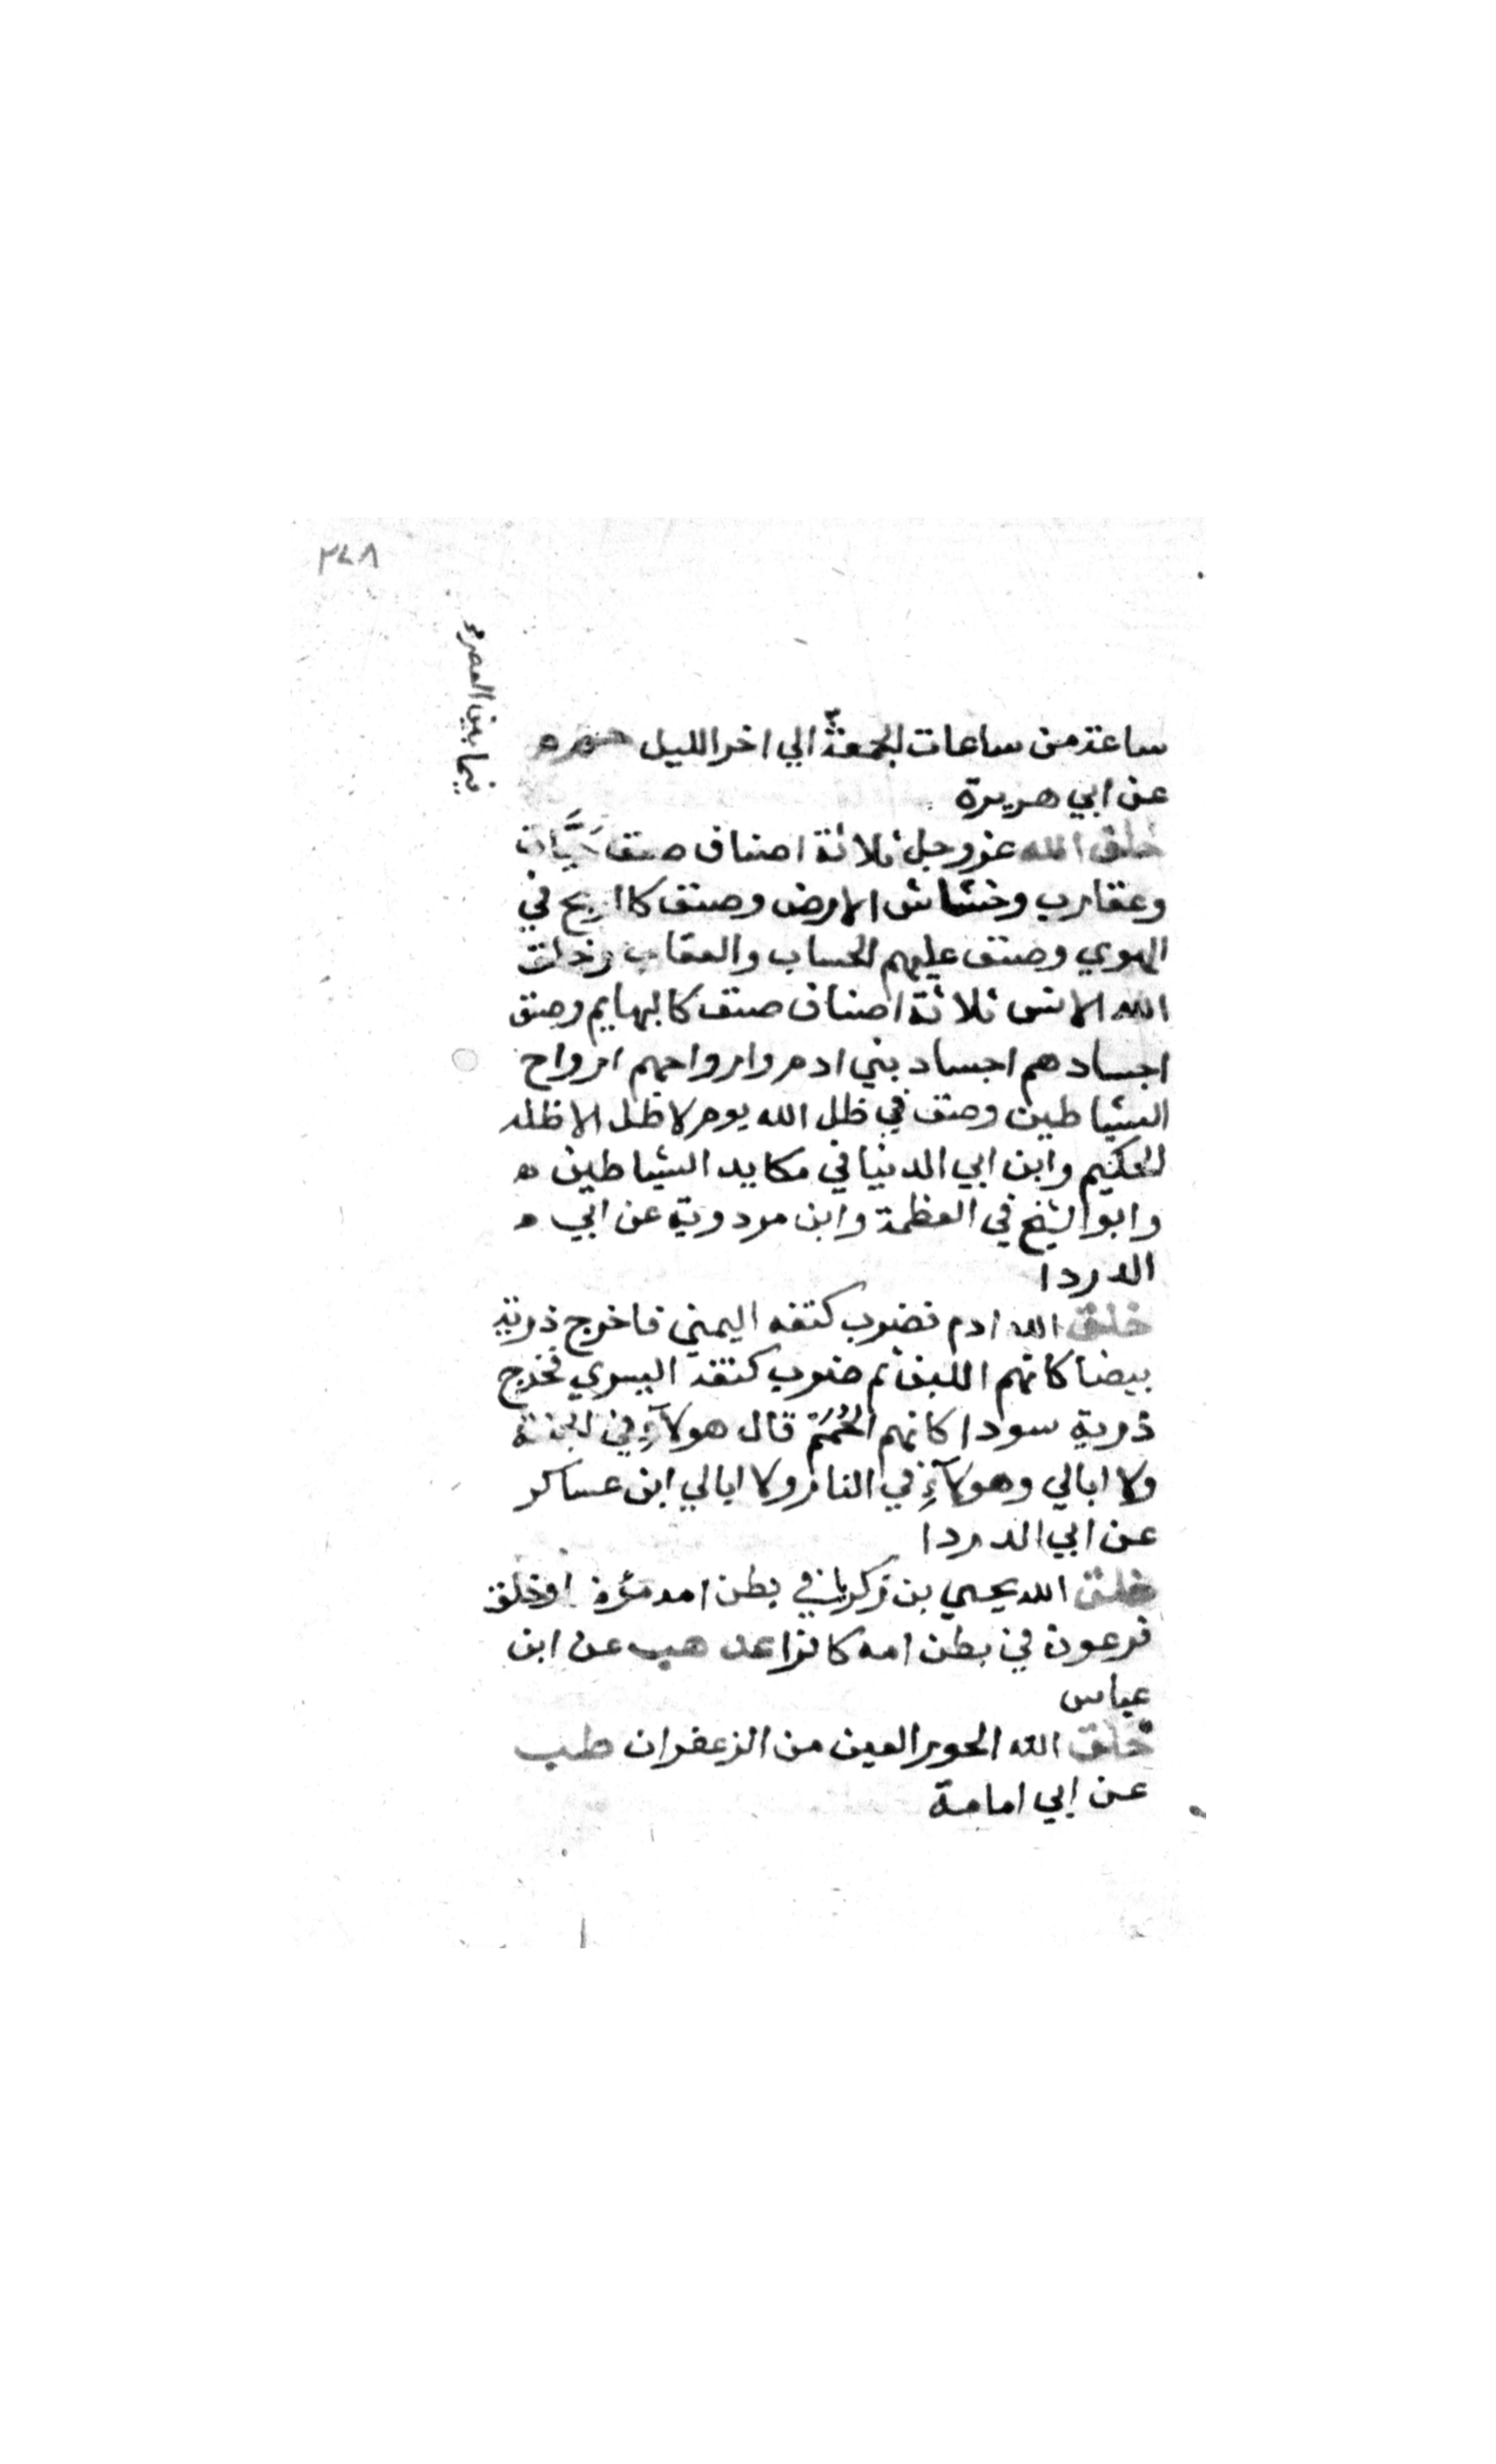 ٣٤٨
فيما بين العصر
ساعة من ساعات الجمعة الي اخر الليل حم م
عن ابي هريرة
خلق الله عز وجل ثلاثة اصناف صنف حَيَّات
وعقارب وخشاش الارض وصنف كاالريح في
الهوي وصنف عليهم الحساب والعقاب وخلق
الله الانس ثلاثة اصناف صنف كالبهايم وصنف
اجسادهم اجساد بني ادم وارواحهم ارواح
الشياطين وصنف في ظل الله يوم لا ظل الا ظله
الحكيم وابن ابي الدنيا في مكايد الشياطين ه
وابو الشيخ في العظمة وابن مردوية عن ابي ه
الدردا
خلق الله ادم فضرب كتفه اليمني فاخرج ذرية
بيضا كانهم اللبن ثم ضرب كتفه اليسري فخرج
ذرية سودا كانهم الحُمَم قال هولآءِ في الجنة
ولا ابالي وهولآءِ في النار ولا ابالي ابن عساكر
عن ابي الدردا
خلق الله يحيي بن زكريا في بطن امه وخلق
فرعون في بطن امه كافرا عد هب عن ابن
عباس
خلق الله الحور العين من الزعفران طب
عن ابي امامة